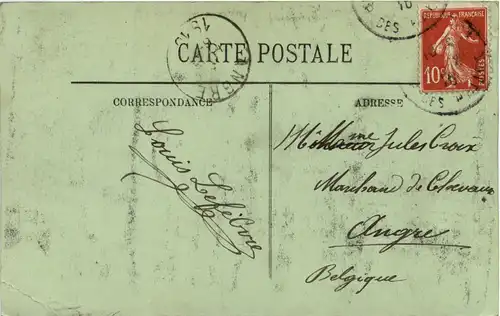 CARTE POSTALE
CORRESPONDANCE
ADRESSE
REPUBLIQUE FRANÇAISE
10c
POSTES
ANGRE
1910
Louis Lefebvre
Mme Jules Croix
Marchand de Chevaux
Angre
Belgique